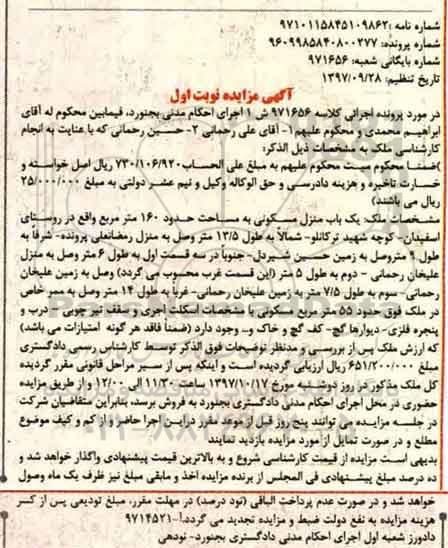 شماره نامه :۹۷۱۰۱۱۵۸۴۵۱۰۹۸۶۲
شماره پرونده: ۹۶۰۹۹۸۵۸۴۰۸۰۰۲۷۷
شماره بایگانی شعبه: ۹۷۱۶۵۶
تاریخ تنظیم: ۱۳۹۷/۰۹/۲۸
آگهی مزایده نوبت اول
در مورد پرونده اجرائی کلاسه ۹۷۱۶۵۶ ش ۱ اجرای احکام مدنی بجنورد، فیمابین محکوم له آقای
ابراهیم محمدی و محکوم علیهم ۱- آقای علی رحمانی ۲- حسین رحمانی که با عنایت به انجام
کارشناسی ملک به مشخصات ذیل الذکر:
)ضمنا محکومیت محکوم علیهم به مبلغ علی الحساب ۷۳۰/۱۰۶/۹۲۰ ریال اصل خواسته و
خسارت تاخیره و هزینه دادرسی و حق الوکاله وکیل و نیم عشر دولتی به مبلغ ۲۵/۰۰۰/۰۰۰
ریال می باشند)
مشخصات ملک: یک باب منزل مسکونی به مساحت حدود ۱۶۰ متر مربع واقع در روستای
اسفیدان- کوچه شهید ترکانلو- شمالاً به طول ۱۳/۵ متر وصل به منزل رمضانعلی پرونده- شرقا به
طول ۹ متروصل به زمین حسین شیردل- جنوباً در سه قسمت اول به طول ۶ متر وصل به منزل
علیخان رحمانی - دوم به طول ۵ متر (این قسمت غرب محسوب می گردد) وصل به زمین علیخان
رحمانی- سوم به طول ۷/۵ متر به زمین علیخان رحمانی- غرباً به طول ۱۴ متر وصل به ممر خاص
در ملک فوق حدود ۵۵ متر مربع مسکونی با مشخصات اسکلت آجری و سقف تیر چوبی - درب و
پنجره فلزی- دیوارها گچ- کف گچ و خاک و... وجود دارد (ضمناً فاقد هر گونه امتیازات می باشد)
که ارزش ملک پس از بررسی و مدنظر توضیحات فوق الذکر توسط کارشناس رسمی دادگستری
مبلغ ۶۵۱/۲۰۰/۰۰۰ ریال ارزیابی گردیده است و اینکه پس از سیر مراحل قانونی مقرر گردیده
کل ملک مذکور در روز دوشنبه مورخ ۱۳۹۷/۱۰/۱۷ ساعت ۱۱/۳۰ الی ۱۲/۰۰ و از طریق مزایده
حضوری در محل اجرای احکام مدنی دادگستری بجنورد به فروش برسد، بنابراین متقاضیان شرکت
در جلسه مزایده می توانند پنج روز قبل از موعد مقرر دراین اجرا حاضر و از کم و کیف موضوع
مطلع و در صورت تمایل از مورد مزایده بازدید نمایند
بدیهی است مزایده از قیمت کارشناسی شروع و به بالاترین قیمت پیشنهادی واگذار خواهد شد و
ده درصد مبلغ پیشنهادی فی المجلس از برنده مزایده اخذ و مابقی مبلغ نیز ظرف یک ماه وصول
خواهد شد و در صورت عدم پرداخت الباقی (نود درصد) در مهلت مقرر، مبلغ تودیعی پس از کسر
هزینه مزایده به نفع دولت ضبط و مزایده تجدید می گردد.آ-۹۷۱۴۵۲۱
دادورز شعبه اول اجرای احکام مدنی دادگستری بجنورد- نودهی